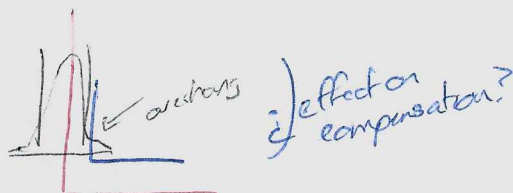 overhang
¿) effect on
compensation?